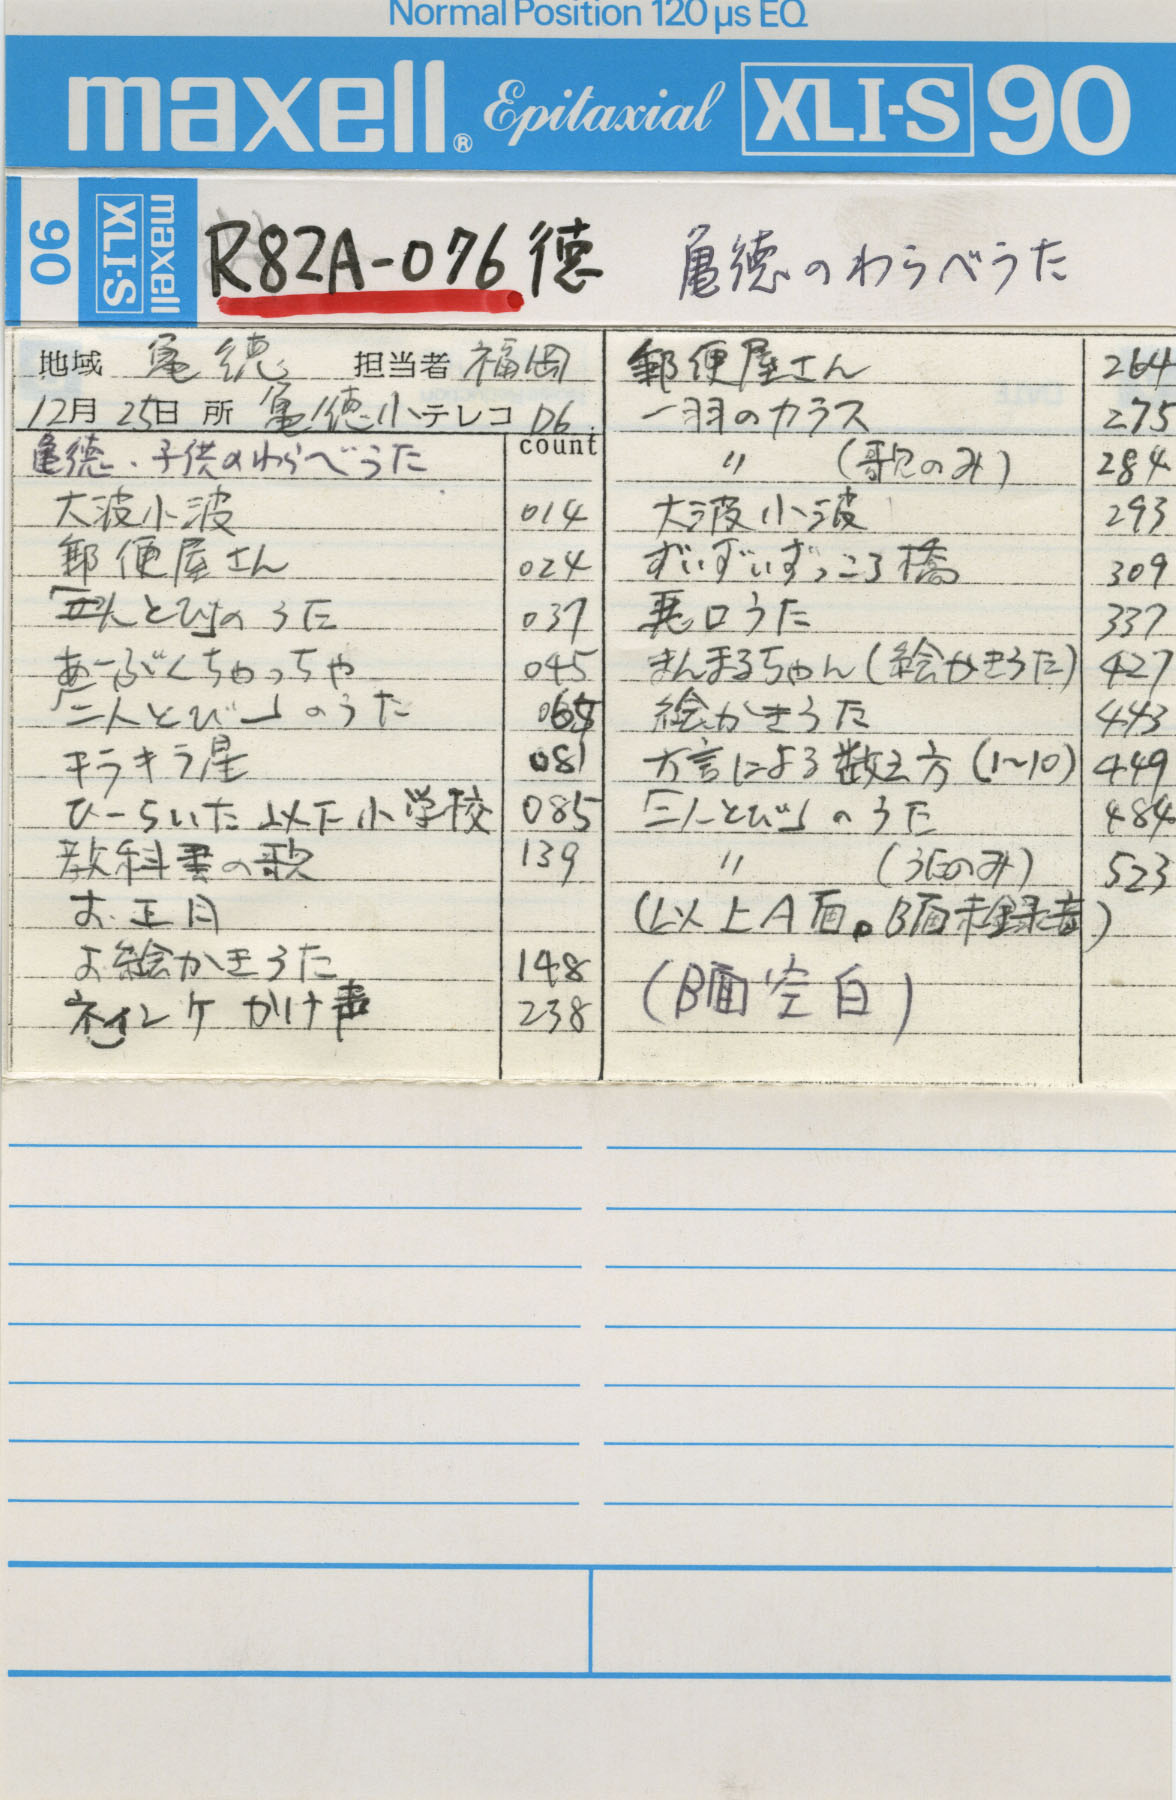 Normal Position 120 µs EQ
maxell® Epitaxial XLI-S 90
90 maxell XLI-S R82A-076 徳 亀徳のわらべうた
地域 亀徳 担当者 福岡
12月 25日 所 亀徳小テレコ D6
count
亀徳、子供のわらべうた
大波小波 014
郵便屋さん 024
とび」のうた 037
あーぶくちゃっちゃ 045
「二人とび」のうた
キラキラ星 081
ひーらいた 以下小学校 085
教科書の歌 139
お正月
お絵かきうた 148
かけ声 238
郵便屋さん 264
一羽のカラス 275
〃 (歌のみ) 284
大波小波 293
ずいずいずっころ橋 309
悪口うた 337
まんまるちゃん(絵かきうた) 427
絵かきうた 443
方言による数え方(1~10) 449
「二人とび」のうた 484
〃 (うたのみ) 523
(以上A面。B面未録音)
(B面空白)